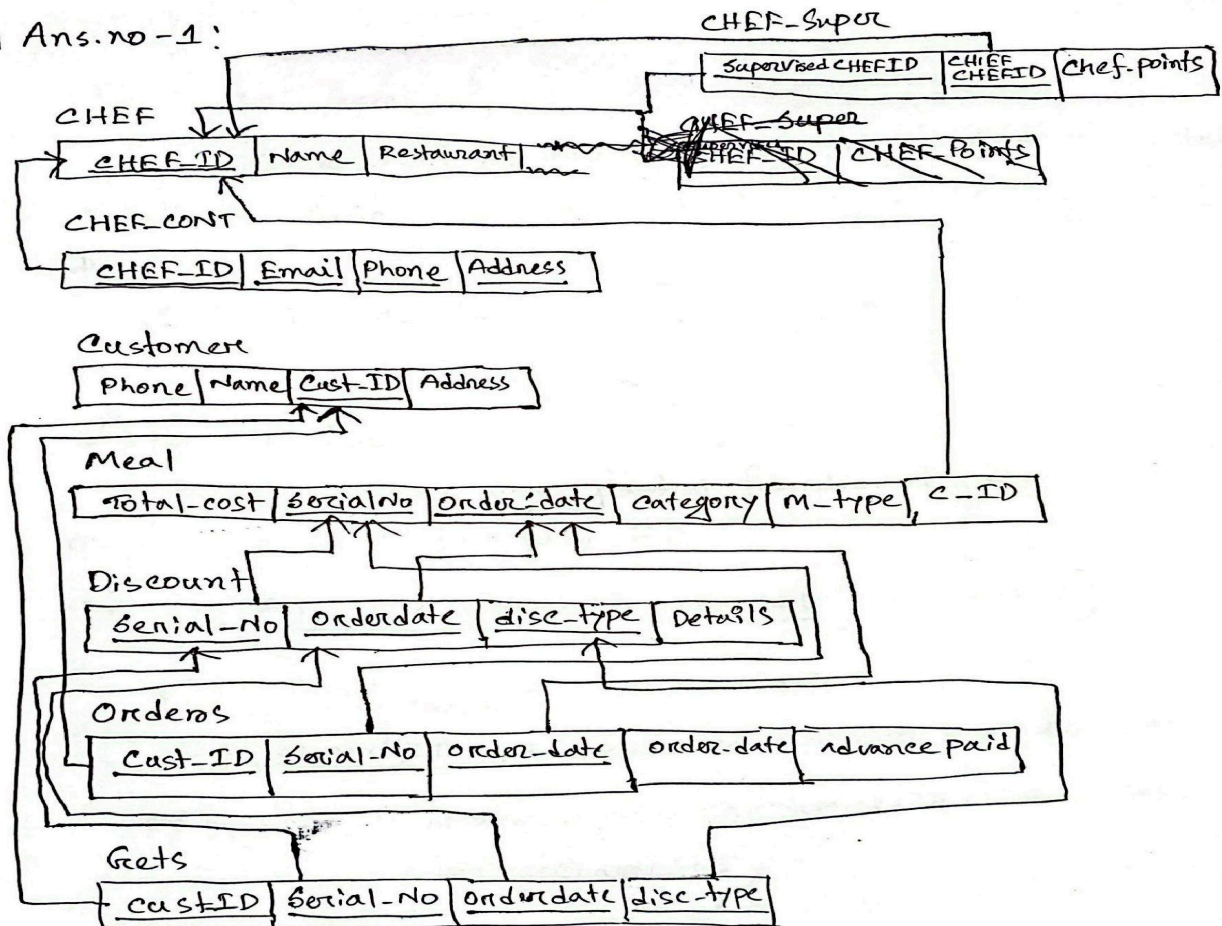 Ans.no-1:
CHEF-Super
Supervised CHEFID CHIEF CHEFID Chef-points
CHEF
CHEF_ID Name Restaurant
CHEF_Super
CHEF_ID CHEF-Points
CHEF_CONT
CHEF_ID Email Phone Address
Customer
Phone Name Cust_ID Address
Meal
Total-cost SerialNo Order-date category M_type C_ID
Discount
Serial_No Orderdate disc_type Details
Orders
Cust_ID Serial_No Order_date order-date Advance paid
Gets
CustID Serial_No Orderdate disc_type